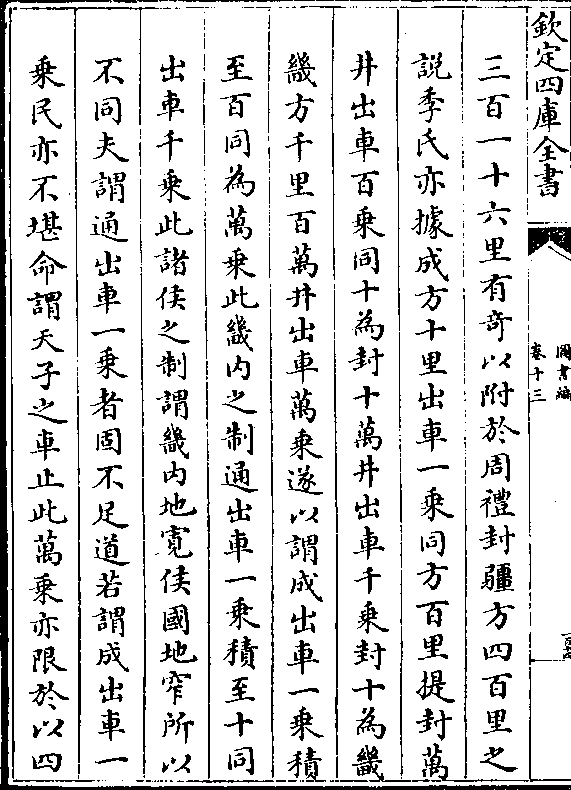 欽定四庫全書
圖書編
卷十三
三百一十六里有奇以附於周禮封疆方四百里之
說季氏亦據成方十里出車一乘同方百里提封萬
井出車百乘同十為封十萬井出車千乘封十為畿
畿方千里百萬井出車萬乘遂以謂成出車一乘積
至百同為萬乘此畿内之制通出車一乘積至十同
出車千乘此諸侯之制謂畿内地寛侯國地窄所以
不同夫謂通出車一乘者固不足道若謂成出車一
乘民亦不堪命謂天子之車止此萬乘亦限於以四